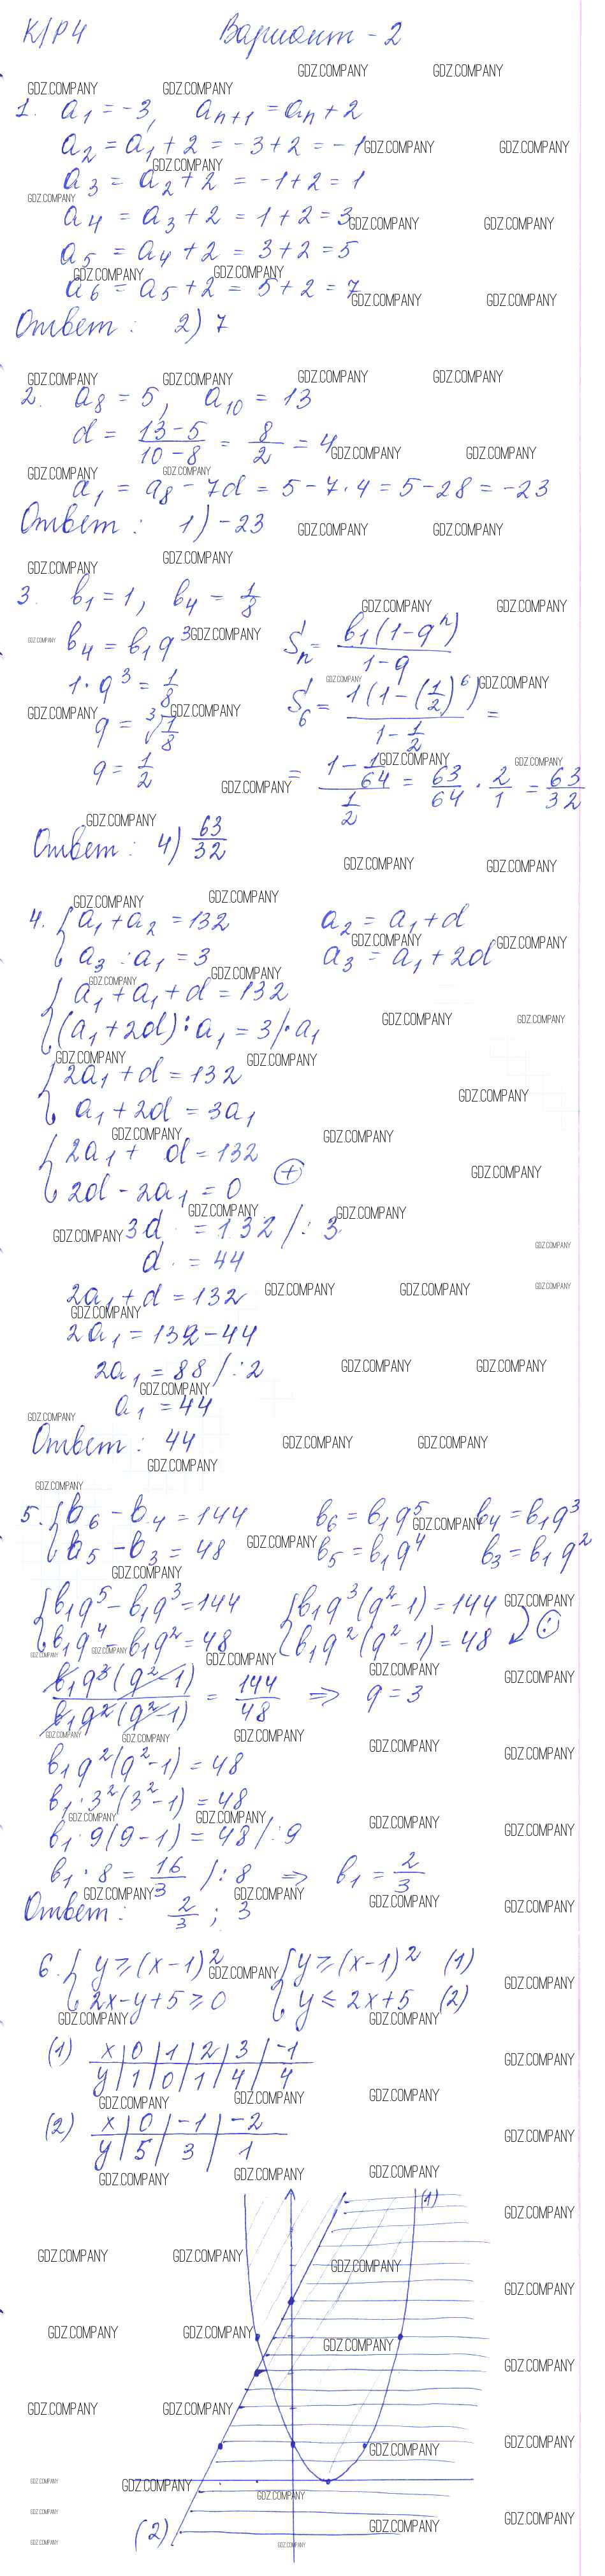 К/Р4 Вариант - 2
1. a₁ = -3, aₙ₊₁ = aₙ + 2
a₂ = a₁ + 2 = -3 + 2 = -1
a₃ = a₂ + 2 = -1 + 2 = 1
a₄ = a₃ + 2 = 1 + 2 = 3
a₅ = a₄ + 2 = 3 + 2 = 5
a₆ = a₅ + 2 = 5 + 2 = 7
Ответ: 2) 7
2. a₈ = 5, a₁₀ = 13
d = (13-5)/(10-8) = 8/2 = 4
a₁ = a₈ - 7d = 5 - 7·4 = 5 - 28 = -23
Ответ: 1) -23
3. b₁ = 1, b₄ = 1/8
b₄ = b₁q³ Sₙ = b₁(1-qⁿ)/(1-q)
1·q³ = 1/8 S₆ = 1(1-(1/2)⁶)/(1-1/2) =
q = ³√(1/8)
q = 1/2 = (1-1/64)/(1/2) = 63/64 · 2/1 = 63/32
Ответ: 4) 63/32
4. { a₁ + a₂ = 132 a₂ = a₁ + d
a₃ : a₁ = 3 a₃ = a₁ + 2d
{ a₁ + a₁ + d = 132
(a₁ + 2d) : a₁ = 3 /· a₁
{ 2a₁ + d = 132
a₁ + 2d = 3a₁
{ 2a₁ + d = 132
2d - 2a₁ = 0 (+)
3d = 132 /: 3
d = 44
2a₁ + d = 132
2a₁ = 132 - 44
2a₁ = 88 /: 2
a₁ = 44
Ответ: 44
5. { b₆ - b₄ = 144 b₆ = b₁q⁵ b₄ = b₁q³
b₅ - b₃ = 48 b₅ = b₁q⁴ b₃ = b₁q²
{ b₁q⁵ - b₁q³ = 144 { b₁q³(q²-1) = 144
b₁q⁴ - b₁q² = 48 b₁q²(q²-1) = 48 (:)
b₁q³(q²-1)/b₁q²(q²-1) = 144/48 ⇒ q = 3
b₁q²(q²-1) = 48
b₁·3²(3²-1) = 48
b₁·9(9-1) = 48 /: 9
b₁·8 = 16/3 /: 8 ⇒ b₁ = 2/3
Ответ: 2/3; 3
6. { y ≥ (x-1)² { y ≥ (x-1)² (1)
2x-y+5 ≥ 0 y ≤ 2x+5 (2)
(1) x | 0 | 1 | 2 | 3 | -1
y | 1 | 0 | 1 | 4 | 4
(2) x | 0 | -1 | -2
y | 5 | 3 | 1
(1)
(2)
GDZ.COMPANY